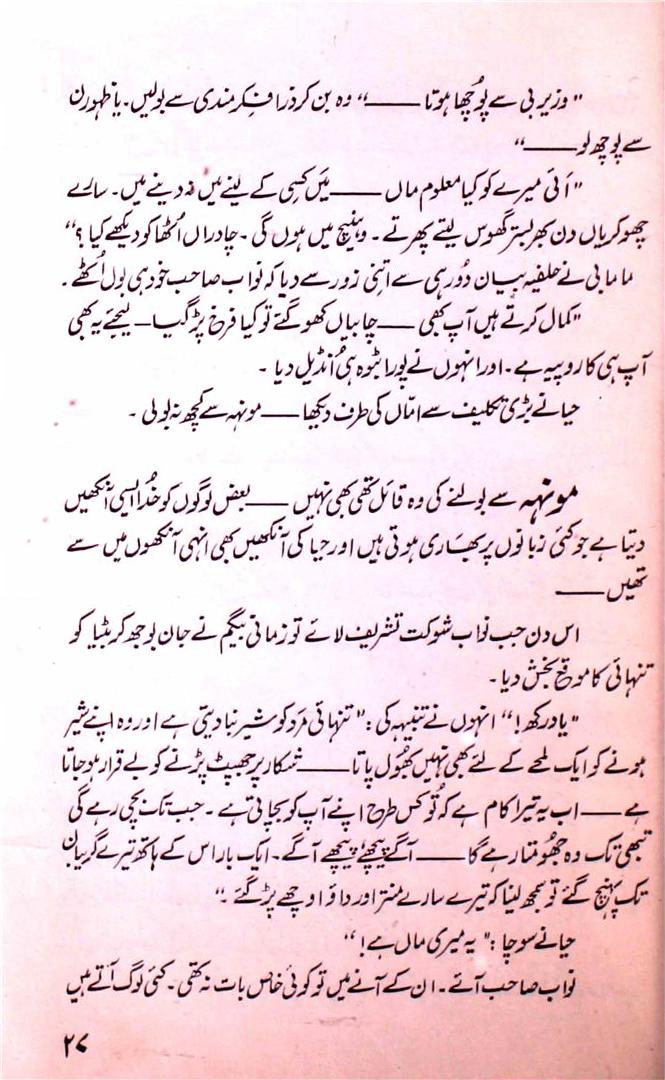 "وزیر بی سے پوچھا ہوتا ——" وہ بن کر ذرا فکر مندی سے بولیں۔ یا ظہورن
سے پوچھ لو ——"
"اَئی میرے کو کیا معلوم ماں —— مَیں کِسی کے لینے میں نہ دینے میں۔ سارے
چھوکریاں دن بھر بستر گھوس لیتے پھرتے۔ وہنیچ میں ہوں گی۔ چادراں اُٹھا کو دیکھے کیا؟"
ماما بی نے حلفیہ بیان دُور ہی سے اتنی زور سے دیا کہ نواب صاحب خود ہی بول اُٹھے۔
"کمال کرتے ہیں آپ بھی —— چابیاں کھو گئے تو کیا فرق پڑ گیا — لیجئے یہ بھی
آپ ہی کا روپیہ ہے۔ اور انہوں نے پورا بٹوہ ہی اُنڈیل دیا۔
حیا نے بڑی تکلیف سے امّاں کی طرف دیکھا —— مونہہ سے کچھ نہ بولی۔
مونہہ سے بولنے کی وہ قائل تھی بھی نہیں —— بعض لوگوں کو خُدا ایسی آنکھیں
دیتا ہے جو کئی زبانوں پر بھاری ہوتی ہیں اور حیا کی آنکھیں بھی انہی آنکھوں میں سے
تھیں ——
اس دن جب نواب شوکت تشریف لائے تو زمانی بیگم نے جان بوجھ کر بٹیا کو
تنہائی کا موقع بخش دیا۔
"یاد رکھ!" انہوں نے تنبیہہ کی: "تنہائی مرد کو شیر بنا دیتی ہے اور وہ اپنے شیر
ہونے کو ایک لمحے کے لئے بھی نہیں بھُول پاتا —— شکار پر جھپٹ پڑنے کو بے قرار ہو جاتا
ہے —— اب یہ تیرا کام ہے کہ تُو کس طرح اپنے آپ کو بچاتی ہے۔ جب تک بچی رہے گی
تبھی تک وہ جھُومتا رہے گا —— آگے پیچھے پیچھے آگے۔ ایک بار اس کے ہاتھ تیرے گریبان
تک پہنچ گئے تو سمجھ لینا کہ تیرے سارے منتر اور داؤ اوچھے پڑ گئے۔"
حیا نے سوچا: "یہ میری ماں ہے!"
نواب صاحب آئے۔ ان کے آنے میں تو کوئی خاص بات نہ تھی۔ کئی لوگ آتے ہیں
۲۷